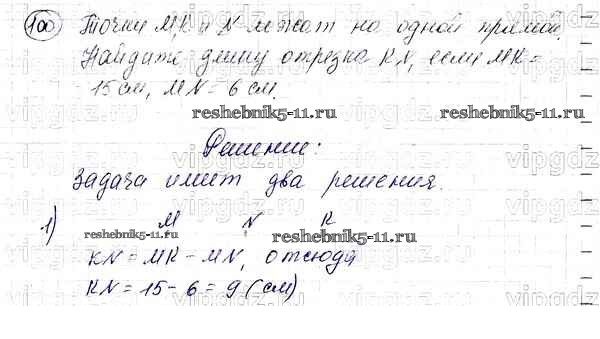 100 Точки M, K и N лежат на одной прямой.
Найдите длину отрезка KN, если MK =
15 см, MN = 6 см.
reshebnik5-11.ru reshebnik5-11.ru
Решение:
Задача имеет два решения.
1) M N K
reshebnik5-11.ru reshebnik5-11.ru
KN = MK - MN, отсюда
KN = 15 - 6 = 9 (см)